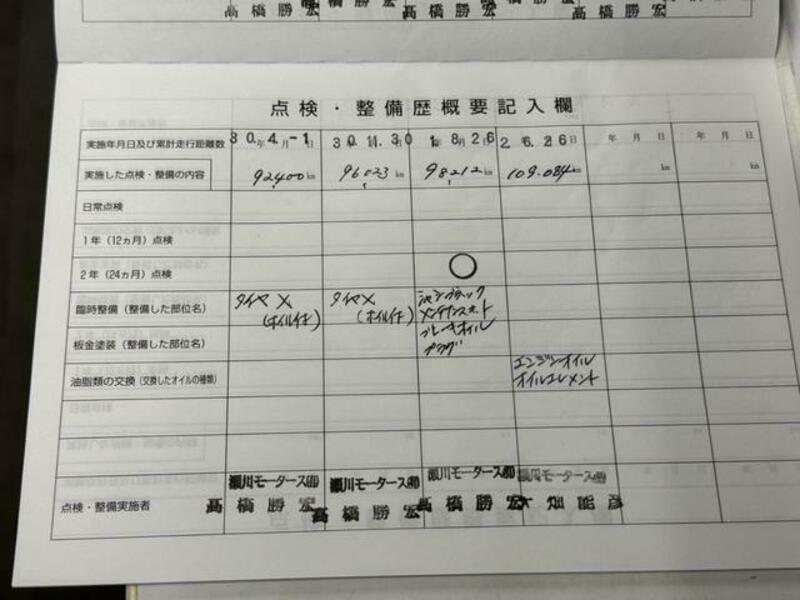 髙橋勝宏 髙橋勝宏 髙橋勝宏
点検・整備歴概要記入欄
実施年月日及び累計走行距離数 30年4月-1日 30.11.30 1.8.26 2 6.26日 年 月 日 年 月 日
実施した点検・整備の内容 92,400km 96,023km 98,212km 109.084km km km
日常点検
1年(12ヵ月)点検
2年(24ヵ月)点検 ○
臨時整備(整備した部位名) タイヤ (ホイル付) タイヤ (ホイル付)
板金塗装(整備した部位名) ブレーキオイル
油脂類の交換(交換したオイルの種類) エンジンオイル
オイルエレメント
点検・整備実施者 瀬川モータース㈲ 瀬川モータース㈲ 瀬川モータース㈲ 瀬川モータース㈲
髙橋勝宏 髙橋勝宏 髙橋勝宏 畑能彦